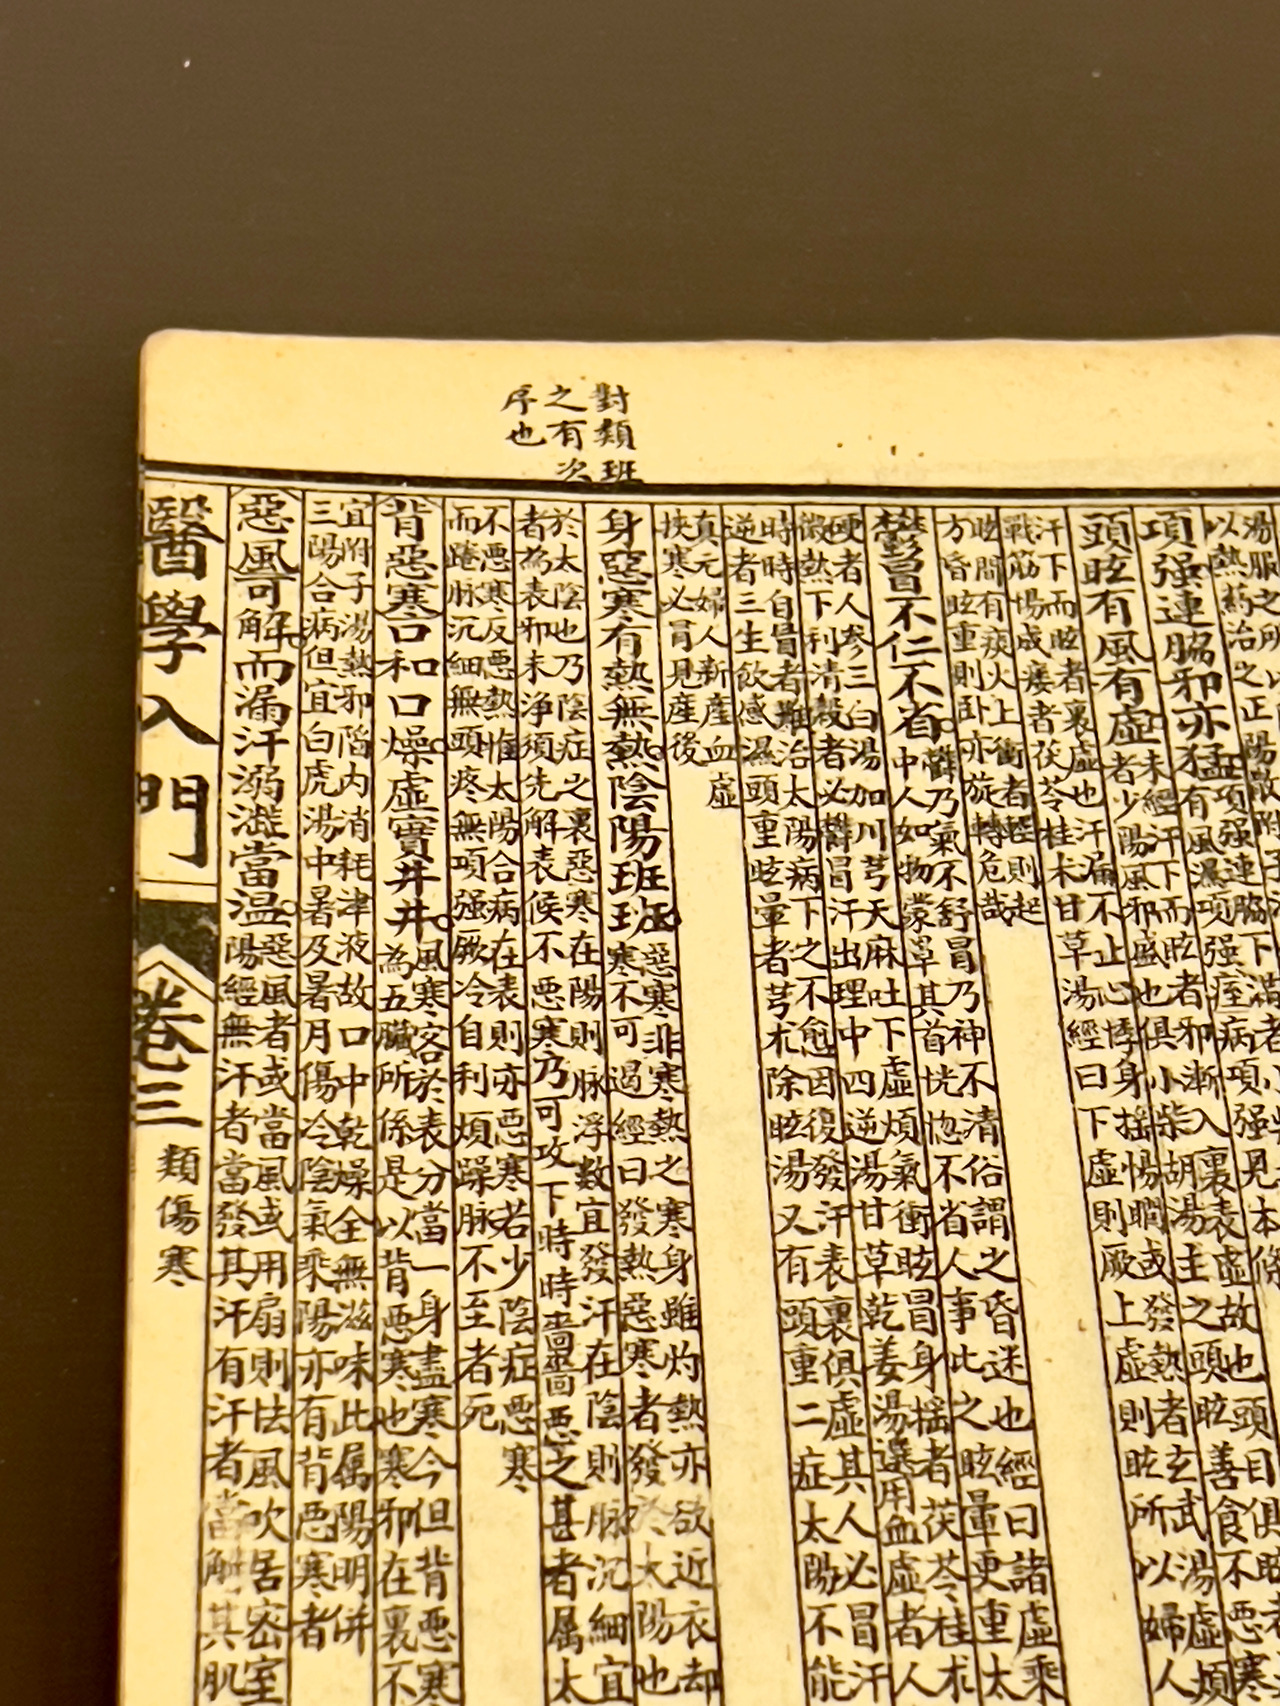 對類班
之有次
序也
以熱药治之正陽散附子湯
項强連脇邪亦猛項强連胸下滿者小
有風濕項强痓病項强見本條
頭眩有風有虛未經汗下而眩者邪漸入裏表虛故也頭目俱眩者
者少陽風邪盛也俱小柴胡湯主之頭眩善食不惡寒
汗下而眩者裏虛也汗漏不止心悸身搖惕瞤或發熱者玄武湯虛煩
戰筋惕成痿者茯苓桂朮甘草湯經曰下虛則厥上虛則眩所以婦人
眩間有痰火上衝者輕則起
方昏眩重則卧亦旋轉危哉
鬱冒不仁不省鬱乃氣不舒冒乃神不清俗謂之昏迷也經曰諸虛乘
中人如物蒙罩其首恍惚不省人事此之眩暈更重太
硬者人參三白湯加川芎天麻吐下虛煩氣衝眩冒身搖者茯苓桂朮
微熱下利清穀者必鬱冒汗出理中四逆湯甘草乾姜湯選用血虛者人
時時自冒者難治太陽病下之不愈因復發汗表裏俱虛其人必冒汗
逆者三生飲感濕頭重眩暈者芎朮除眩湯又有頭重二症太陽不能
真元婦人新産血虛
挾寒必冒見産後
身惡寒有熱無熱陰陽班班惡寒非寒熱之寒身雖灼熱亦欲近衣却
寒不可遏經曰發熱惡寒者發於太陽也
於太陰也乃陰症之裏惡寒在陽則脉浮數宜發汗在陰則脉沉細宜
者為表邪未淨須先解表候不惡寒乃可攻下時時嗇嗇惡之甚者属太
不惡寒反惡熱惟太陽合病在表則亦惡寒若少陰症惡寒
而踡脉沉細無頭疼無項强厥冷自利煩躁脉不至者死
背惡寒口和口燥虛實井井風寒客於表分當一身盡寒今但背惡寒
為五臟所係是以背惡寒也寒邪在裏不
宜附子湯熱邪陷内消耗津液故口中乾燥全無滋味此属陽明併
三陽合病但宜白虎湯中暑及暑月傷冷陰氣乘陽亦有背惡寒者
惡風可解而漏汗溺澁當温惡風者或當風或用扇則怯風吹居密室
陽經無汗者當發其汗有汗者當解其肌
醫學入門 卷三 類傷寒